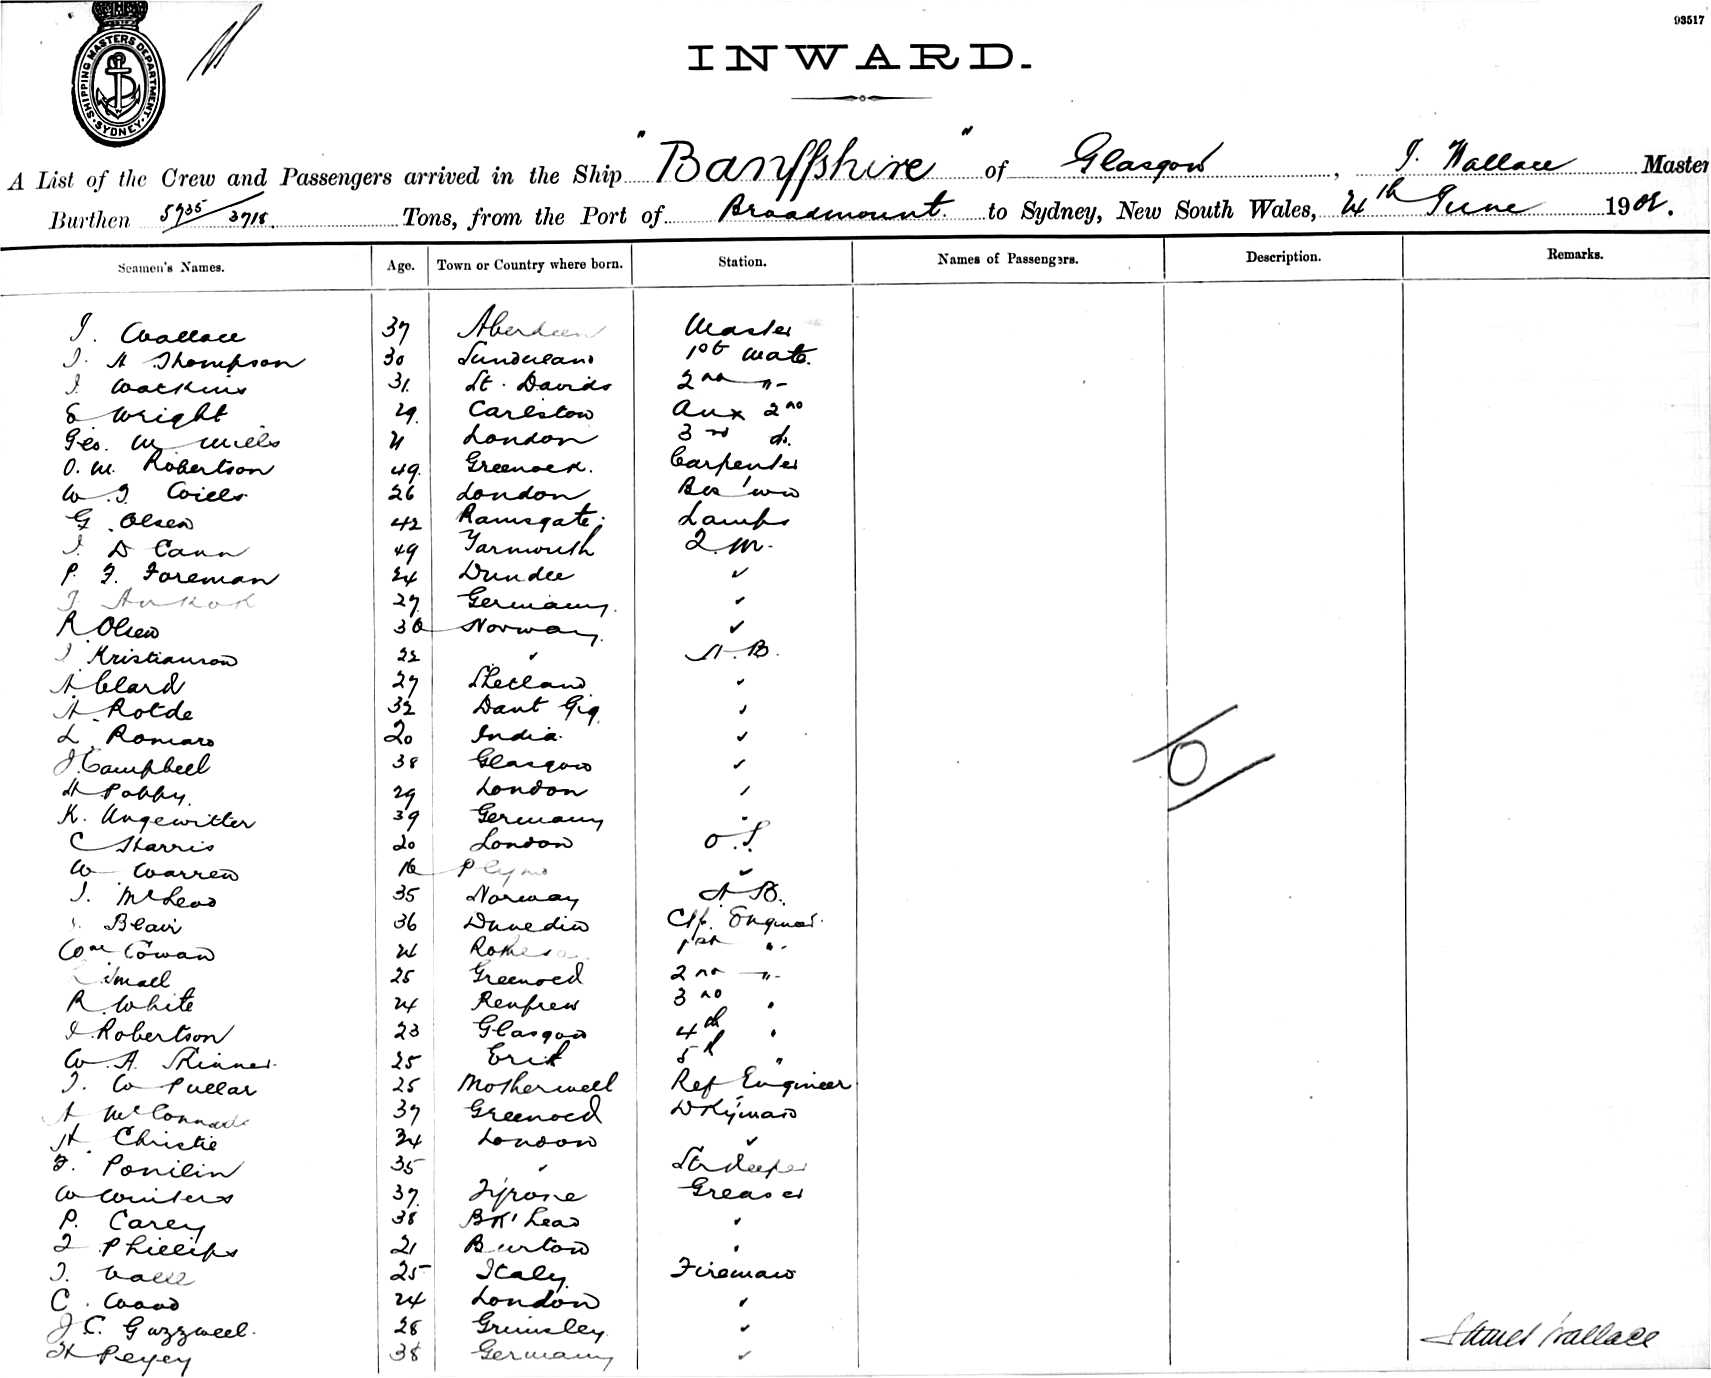 93517
SHIPPING MASTERS DEPARTMENT. SYDNEY.
INWARD.
A List of the Crew and Passengers arrived in the Ship "Banffshire" of Glasgow, J. Wallace Master
Burthen 5735/3718. Tons, from the Port of Broadmount. to Sydney, New South Wales, 24th June 1902.
Seamen's Names. Age. Town or Country where born. Station. Names of Passengers. Description. Remarks.
J. Wallace 37 Aberdeen Master
J. A Thompson 30 Sunderland 1st Mate.
J. Watkins 31. St. Davids 2nd "-
E Wright 29. Carlston Aux 2nd
Geo. W Mills 21 London 3rd do.
O. M. Robertson 49. Greenock. Carpenter
W. J Wills 26 London Bos'wn
G. Olsen 42 Ramsgate. Lamps
J. D Cann 49 Yarmouth Q. M.
P. F. Foreman 24 Dundee ✓
27 Germany. ✓
R Olsen 30 Norway. ✓
J Kristianson 22 " A. B.
A. Clard 27 Shetland ✓
A. Rotde 32 Dant Gig ✓
L. Romaro 20 India. ✓
J. Campbell 38 Glasgow ✓
H Pobby. 29 London ✓
K. Ungewitter 39 Germany "
C Harris 20 London O. S.
W Warren 16 Plym ✓
J. McLeod 35 Norway A B.
Blair 36 Dunedin Chf. Engineer.
Wm Cowan 24 1st "-
Small 25 Greenock 2nd "-
R. White 24 Renfrew 3rd "
J. Robertson 23 Glasgow 4th "
W. A. Skinner. 25 Erith 5th "
J. W Pullar 25 Motherwell Ref Engineer
A McConnell 37 Greenock Dkyman
H Christie 34 London ✓
F. Ponilin 35 " Str Keeper
W Winters 37. Tyrone Greaser
P. Carey 38 Bk'head "
J Phillips 21 Burton "
J. Vall 25 Italy. Fireman
C. Wood 24 London ✓
J C. Guzzwell. 28 Grimsley. ✓
H Peyey 38 Germany ✓
James Wallace